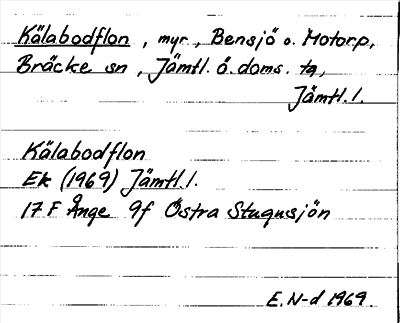 Kälabodflon, myr, Bensjö o. Motorp,
Bräcke sn, Jämtl. ö. doms. tg,
Jämtl. l.
Kälabodflon
Ek (1969) Jämtl. l.
17 F Ånge 9f Östra Stugusjön
E. N-d 1969.